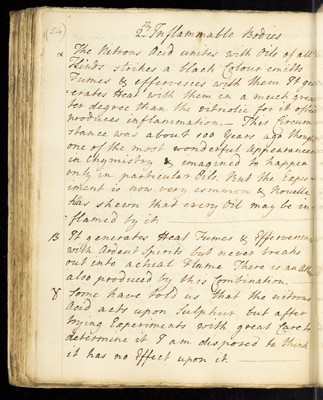 2ly Inflammable Bodies
α The Nitrous Acid unites with Oils of all
Kinds strikes a black Colour emits
Fumes & effervesces with them It gen
-erates Heat with them in a much grea
ter degree than the vitriolic for it often
produces inflammation — This Circum
stance was about 100 Years ago thought
one of the most wonderful Appearances
in Chymistry & imagined to happen
only in particular Oils. But the Exper
iment is now very common & Rouelle
has shewn that every Oil may be in
flamed by it. —
β It generates Heat Fumes & Effervesces
with Ardent Spirits but never breaks
out into actual Flame There is an
also produced by this Combination. —
γ Some have told us that the nitrous
Acid acts upon Sulphur but after
trying Experiments with great Care to
determine it I am disposed to think
it has no Effect upon it. —